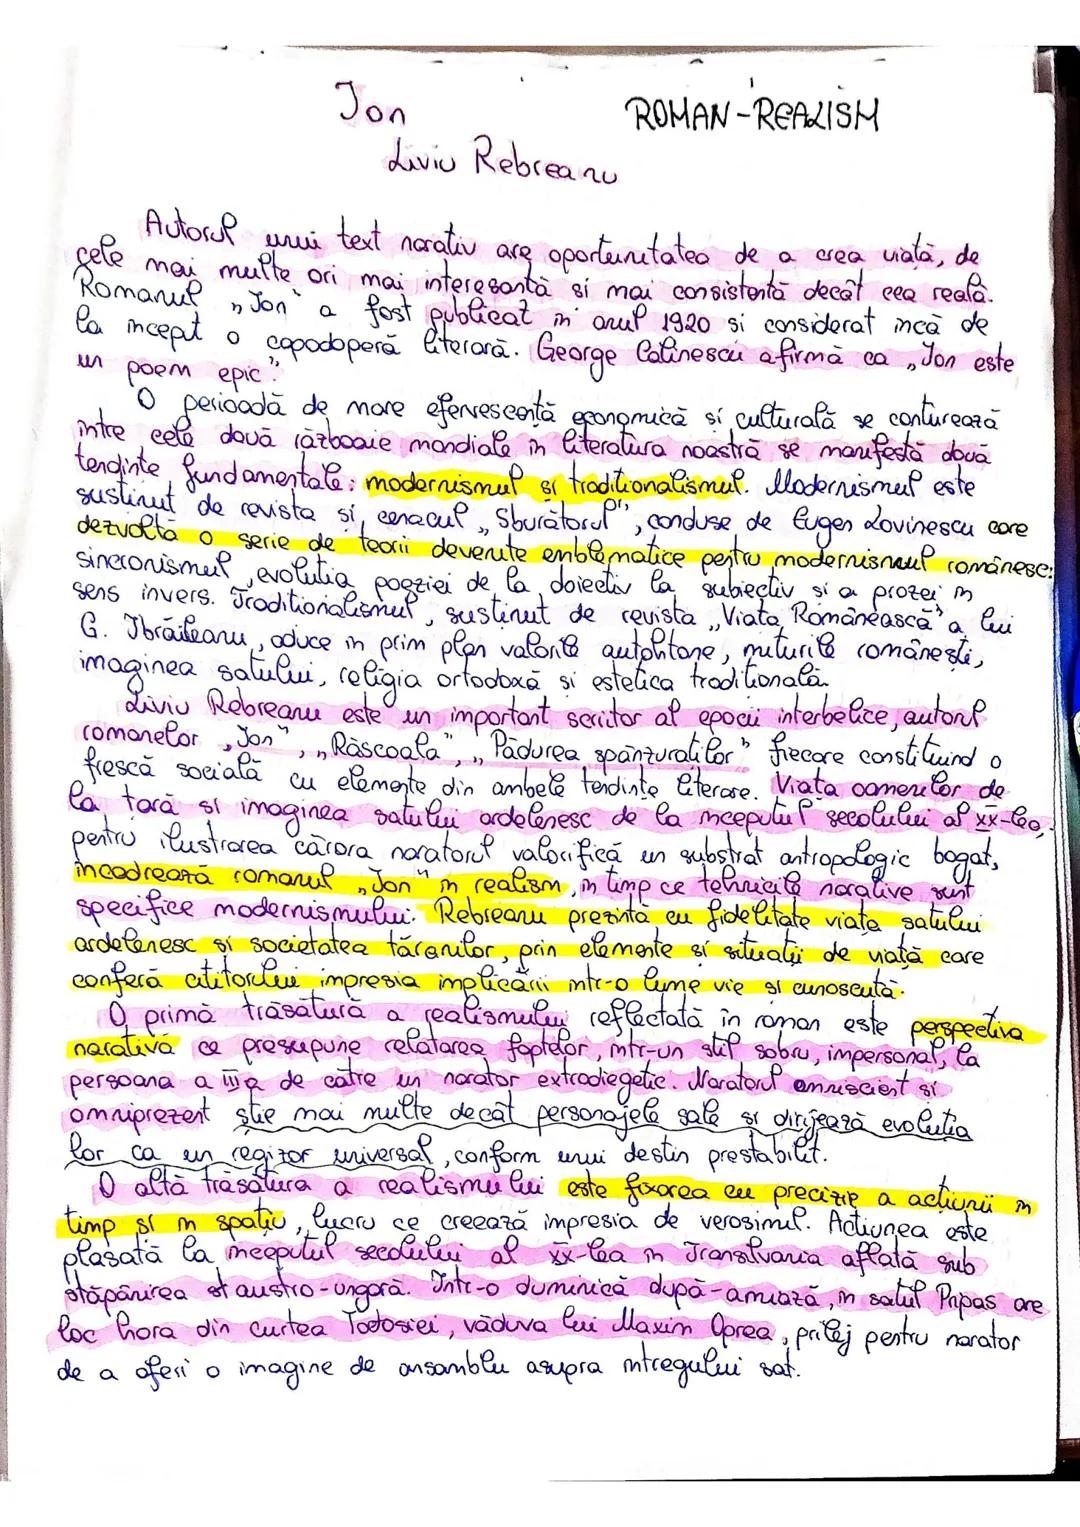 Ion
ROMAN-REALISM
Liviu Rebreanu
Autorul unui text narativ are oportunitatea de a crea viață, de
cele mai multe ori mai interesantă și mai consistentă decât cea reală.
Romanul "Ion" a fost publicat în anul 1920 și considerat încă de
la început o capodoperă literară. George Călinescu afirmă ca „Ion este
un poem epic".
O perioadă de mare efervescență economică și culturală se conturează
între cele două războaie mondiale în literatura noastră se manifestă două
tendințe fundamentale: modernismul și tradiționalismul. Modernismul este
susținut de revista și cenacul „Sburătorul", conduse de Eugen Lovinescu care
dezvoltă o serie de teorii devenite emblematice pentru modernismul românesc:
sincronismul, evoluția poeziei de la obiectiv la subiectiv și a prozei în
sens invers. Tradiționalismul, susținut de revista „Viața Românească" a lui
G. Ibrăileanu, aduce in prim plan valorile autohtone, miturile românești,
imaginea satului, religia ortodoxă și estetica tradițională.
Liviu Rebreanu este un important scriitor al epocii interbelice, autorul
romanelor „Ion", „Răscoala", „Pădurea spânzuraților" fiecare constituind o
frescă socială cu elemente din ambele tendințe literare. Viața oamenilor de
la țară și imaginea satului ardelenesc de la începutul secolului al XX-lea,
pentru ilustrarea cărora naratorul valorifică un substrat antropologic bogat,
încadrează romanul „Ion" în realism, în timp ce tehnicile narative sunt
specifice modernismului. Rebreanu prezintă cu fidelitate viața satului
ardelenesc și societatea țăranilor, prin elemente și situații de viață care
conferă cititorului impresia implicării într-o lume vie și cunoscută.
O primă trăsătură a realismului reflectată în roman este perspectiva
narativă ce presupune relatarea faptelor, într-un stil sobru, impersonal, la
persoana a III a de către un narator extradiegetic. Naratorul omniscient și
omniprezent știe mai multe decât personajele sale și dirijează evoluția
lor ca un regizor universal, conform unui destin prestabilit.
O altă trăsătura a realismului este fixarea cu precizie a acțiunii în
timp și în spațiu, lucru ce creează impresia de verosimil. Acțiunea este
plasată la începutul secolului al XX-lea în Transilvania aflată sub
stăpânirea austro-ungară. Într-o duminică după-amiază, în satul Pripas are
loc hora din curtea Todosiei, văduva lui Maxim Oprea, prilej pentru narator
de a oferi o imagine de ansamblu asupra întregului sat.